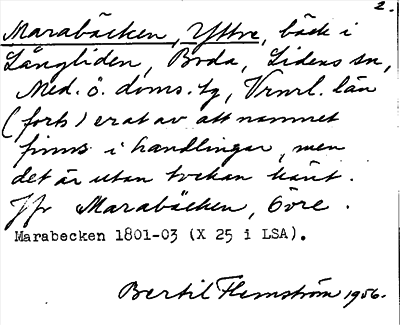 2.
Marabäcken, Yttre, bäck i
Långliden, Boda, Lidens sn,
Med. ö. doms. tg, Vrnrl. län
(forts) erat av att namnet
finns i handlingar, men
det är utan tvekan känt.
Jfr Marabäcken, Övre.
Marabecken 1801-03 (X 25 i LSA).
Bertil Flemström 1956.